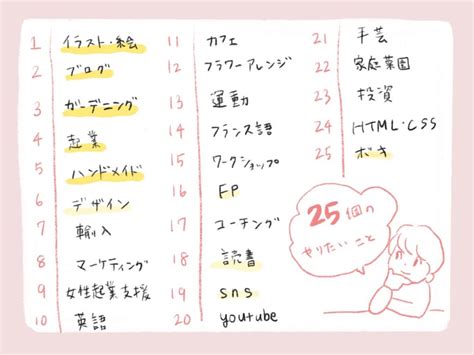 1 イラスト・絵
2 ブログ
3 ガーデニング
4 起業
5 ハンドメイド
6 デザイン
7 輸入
8 マーケティング
9 女性起業支援
10 英語
11 カフェ
12 フラワーアレンジ
13 運動
14 フランス語
15 ワークショップ
16 FP
17 コーチング
18 読書
19 sns
20 youtube
21 手芸
22 家庭菜園
23 投資
24 HTML・CSS
25 ボキ
25個の
やりたいこと